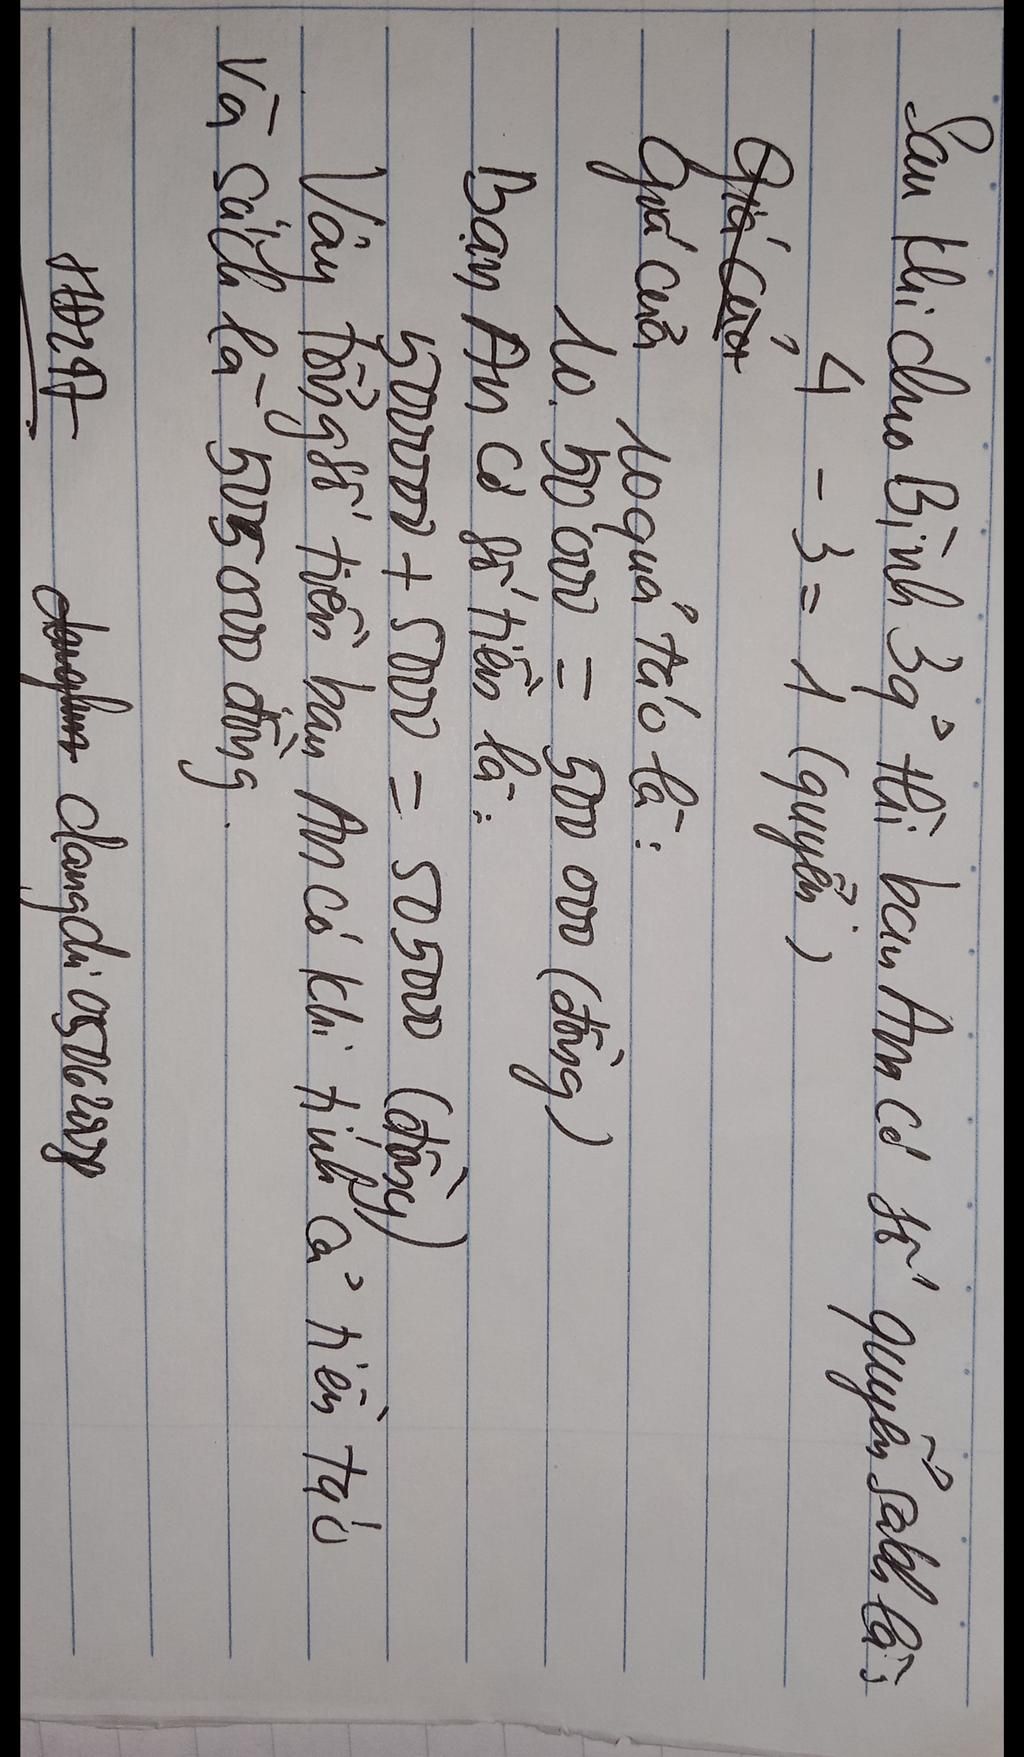 Sau khi cho Bình 3q' thì bạn An có số quyển sách là:
4 - 3 = 1 (quyển)
Giá của
Giá của 10 quả táo là:
10. 50 000 = 500 000 (đồng)
Bạn An có số tiền là:
500000 + 5000 = 505000 (đồng)
Vây tổng số tiền bạn An có khi tính cả tiền táo
Và sách là 505000 đồng.
dangdi